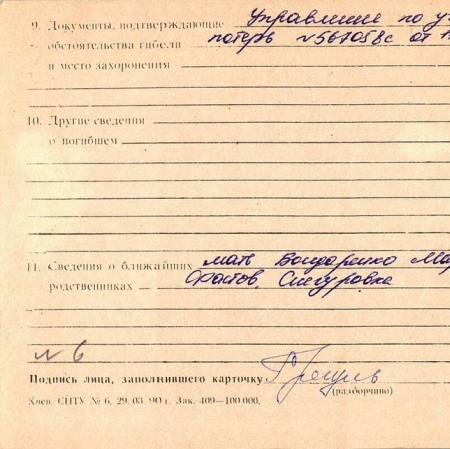 9. Документы, подтверждающие Управление по у
обстоятельства гибели потерь №567058с от 1
и место захоронения
10. Другие сведения
о погибшем
11. Сведения о ближайших мать Бондаренко Ма
родственниках Фастов, Снегуровка
№ 6
Подпись лица, заполнившего карточку
(разборчиво)
Киев. СПТУ № 6. 29. 03. 90 г. Зак. 409—100 000.